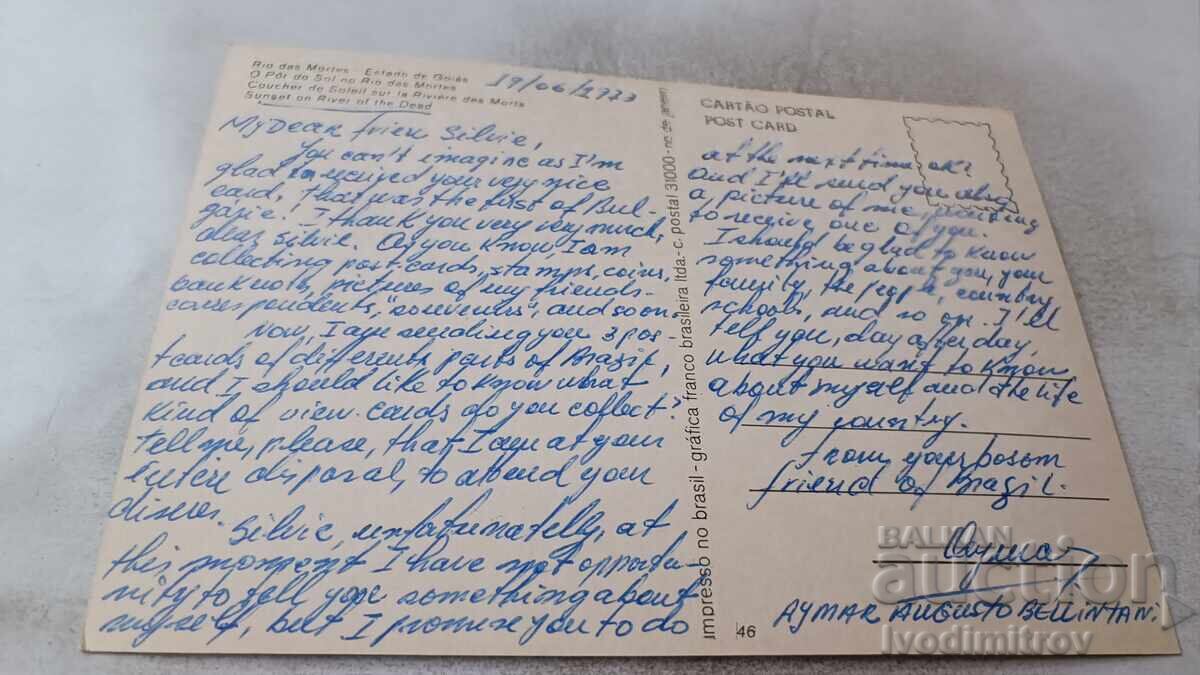 Rio das Mortes - Estado de Goiás
O Pôr do Sol no Rio das Mortes
Coucher de Soleil sur la Rivière des Morts
Sunset on River of the Dead
19/06/1973
My Dear frien Silvie,
You can't imagine as I'm
glad to received your very nice
card. That was the first of Bul-
garie! I thank you very very much,
dear Silvie. As you know, I am
collecting post-cards, stamps, coins,
banknots, pictures of my friends-
correspondents, "souvenirs", and soon.
Now, I am sending you 3 pos
t cards of differents parts of Brazil,
and I should like to know what
kind of view-cards do you collect?
Tell me, please, that I am at your
entire disposal, to attend your
Silvie, unfortunatelly, at
this moment I have not opportu-
nity to tell you something about
myself, but I promise you to do
impresso no brasil - gráfica franco brasileira ltda. - c. postal 31000 - rio de janeiro
CARTÃO POSTAL
POST CARD
at the next time ok?
And I'll send you also
a picture of me,
to receive one of you.
I should be glad to know
something about you, your
family, the people, country,
schools, and so on. I'll
tell you, day after day,
what you want to know
about myself and the life
of my country.
From your bosom
friend of Brazil.
Aymar
AYMAR AUGUSTO BELLINTANI.
46
BALKAN
auction
Ivodimitrov